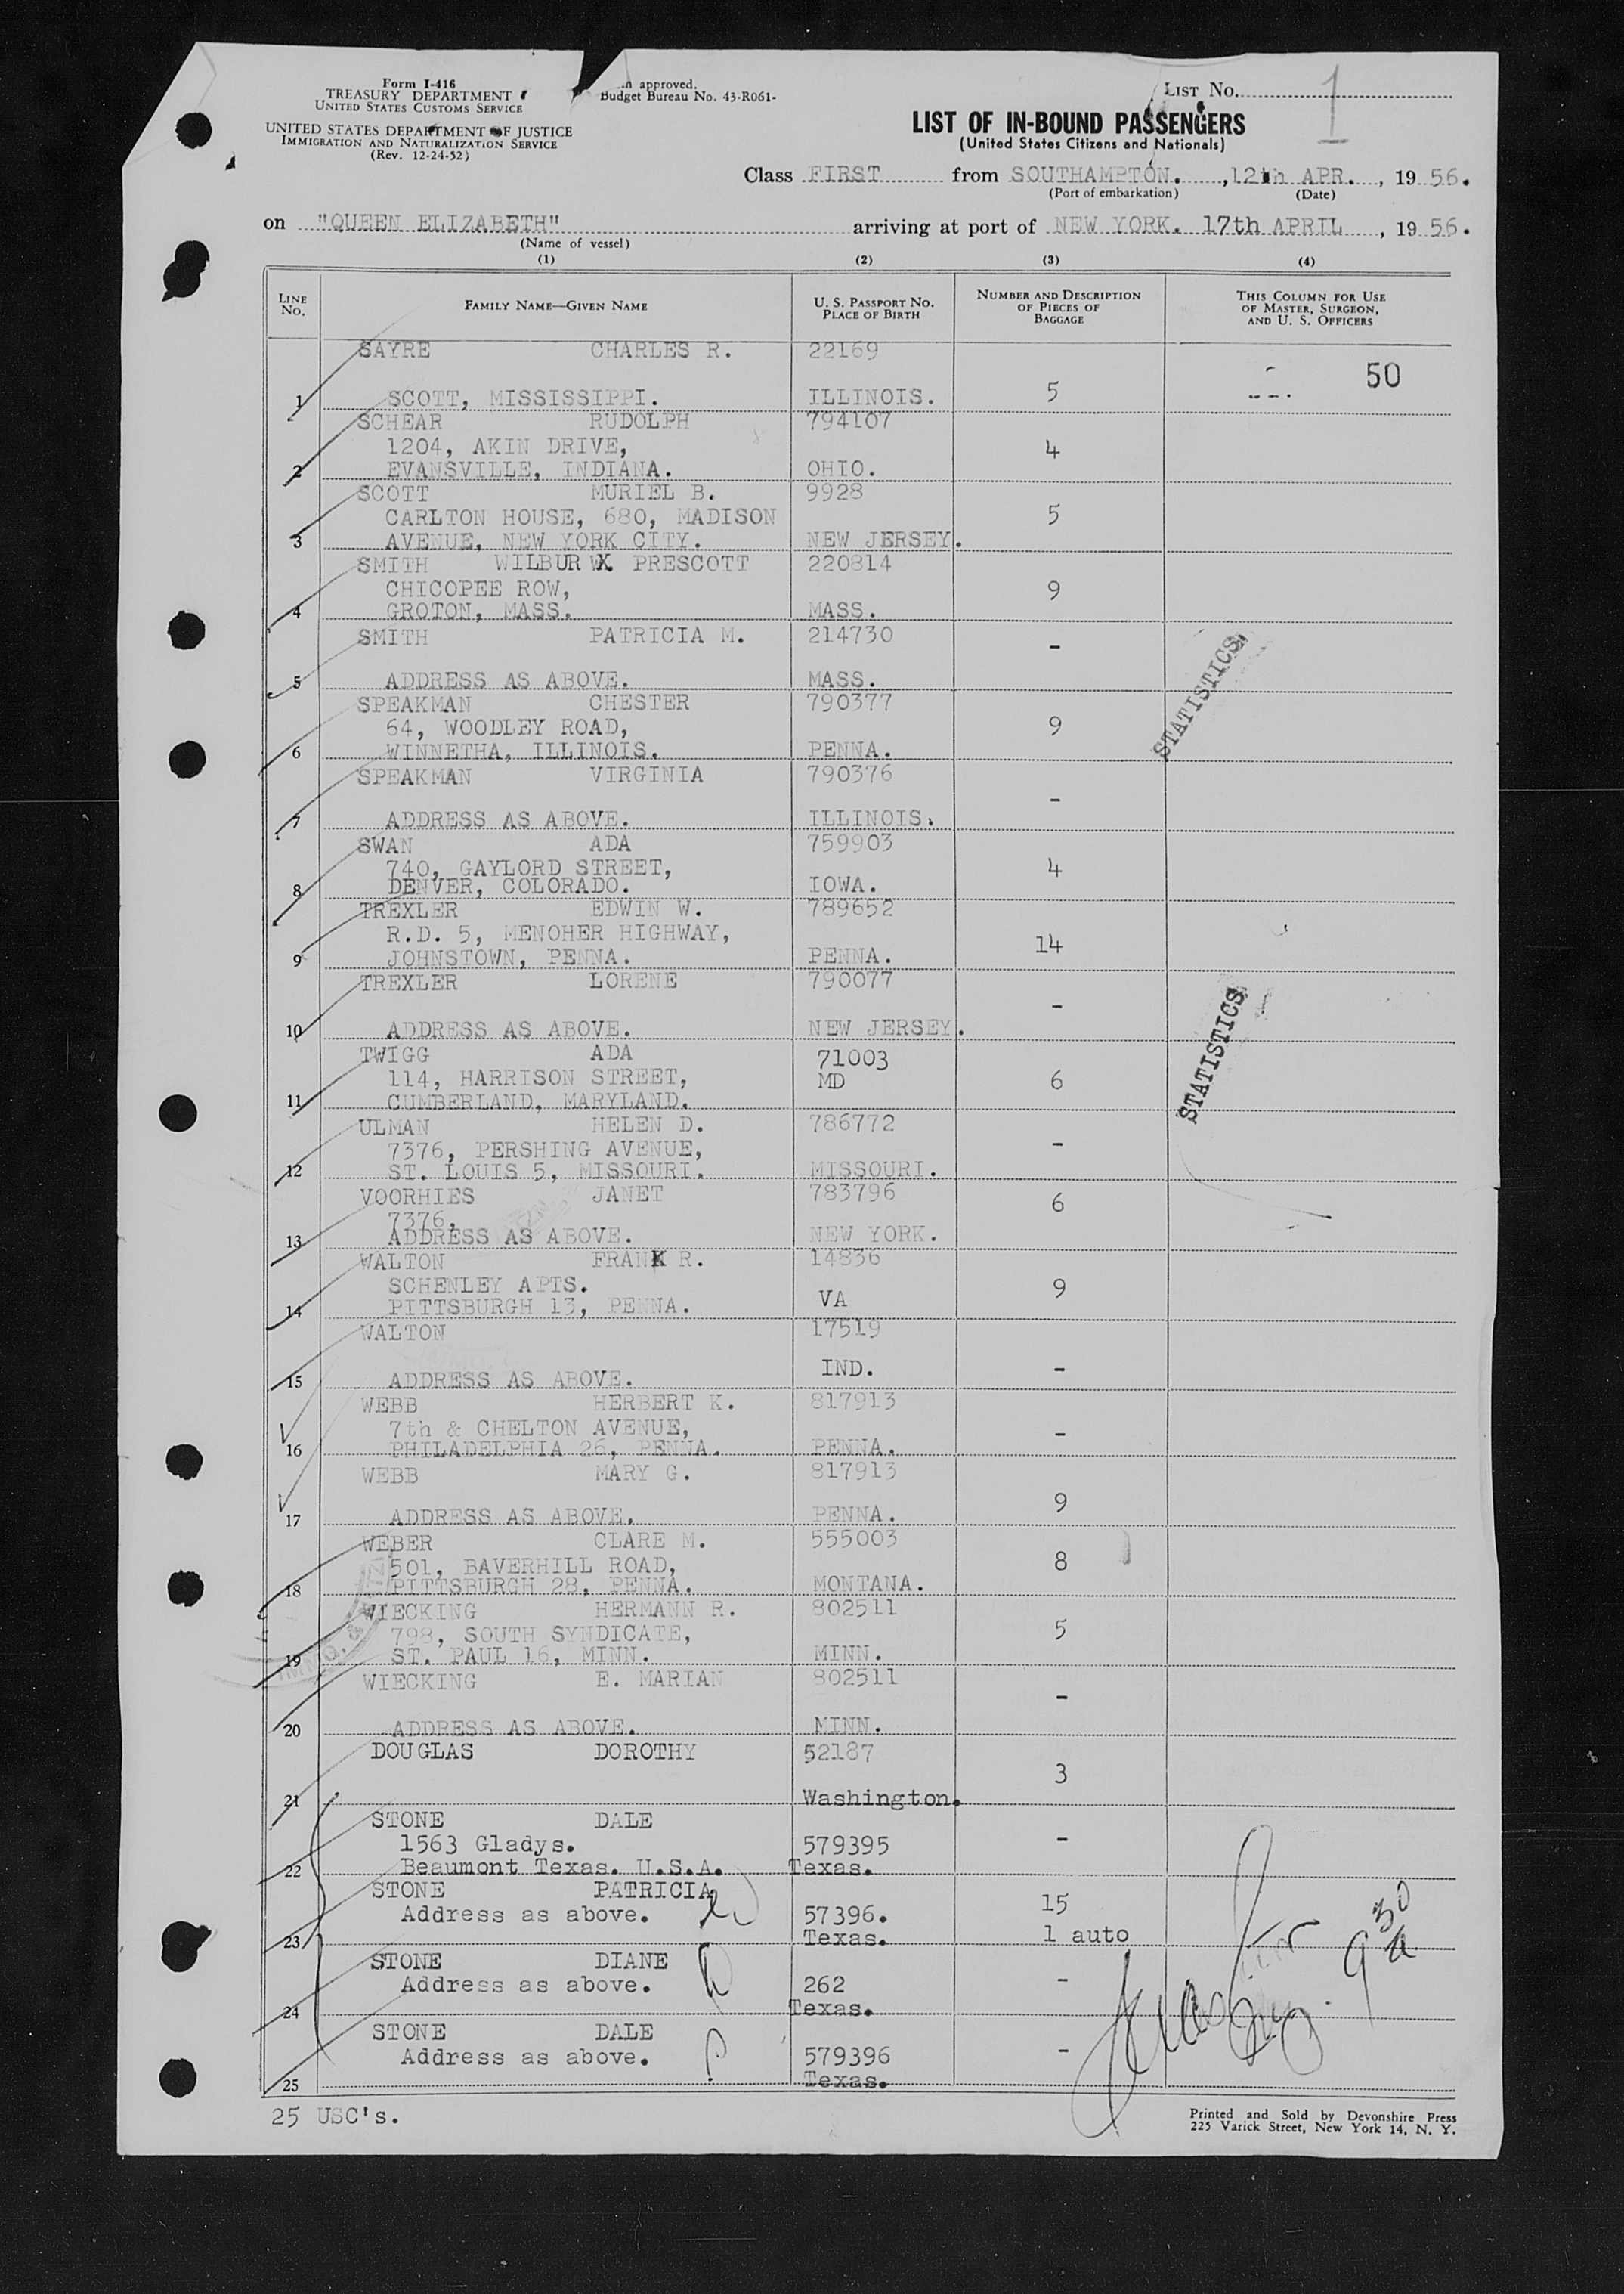 Form I-416
TREASURY DEPARTMENT
UNITED STATES CUSTOMS SERVICE
UNITED STATES DEPARTMENT OF JUSTICE
IMMIGRATION AND NATURALIZATION SERVICE
(Rev. 12-24-52)
approved.
Budget Bureau No. 43-R061-
LIST No. 1
LIST OF IN-BOUND PASSENGERS
(United States Citizens and Nationals)
Class FIRST from SOUTHAMPTON. , 12th APR. , 19 56.
(Port of embarkation) (Date)
on "QUEEN ELIZABETH" arriving at port of NEW YORK. 17th APRIL , 19 56.
(Name of vessel)
(1) (2) (3) (4)
LINE No. FAMILY NAME—GIVEN NAME U. S. PASSPORT NO. PLACE OF BIRTH NUMBER AND DESCRIPTION OF PIECES OF BAGGAGE THIS COLUMN FOR USE OF MASTER, SURGEON, AND U. S. OFFICERS
SAYRE CHARLES R. 22169
50
1 SCOTT, MISSISSIPPI. ILLINOIS. 5
SCHEAR RUDOLPH 794107
1204, AKIN DRIVE, 4
2 EVANSVILLE, INDIANA. OHIO.
SCOTT MURIEL B. 9928
CARLTON HOUSE, 680, MADISON 5
3 AVENUE, NEW YORK CITY. NEW JERSEY.
SMITH WILBUR WX. PRESCOTT 220814
CHICOPEE ROW, 9
4 GROTON, MASS. MASS.
SMITH PATRICIA M. 214730
-
5 ADDRESS AS ABOVE. MASS.
STATISTICS
SPEAKMAN CHESTER 790377
64, WOODLEY ROAD, 9
6 WINNETHA, ILLINOIS. PENNA.
SPEAKMAN VIRGINIA 790376
-
7 ADDRESS AS ABOVE. ILLINOIS.
SWAN ADA 759903
740, GAYLORD STREET, 4
8 DENVER, COLORADO. IOWA.
TREXLER EDWIN W. 789652
R.D. 5, MENOHER HIGHWAY, 14
9 JOHNSTOWN, PENNA. PENNA.
TREXLER LORENE 790077
-
10 ADDRESS AS ABOVE. NEW JERSEY.
STATISTICS
TWIGG ADA 71003
114, HARRISON STREET, MD 6
11 CUMBERLAND, MARYLAND.
ULMAN HELEN D. 786772
7376, PERSHING AVENUE, -
12 ST. LOUIS 5, MISSOURI. MISSOURI.
VOORHIES JANET 783796
7376, 6
13 ADDRESS AS ABOVE. NEW YORK.
WALTON FRANK R. 14836
SCHENLEY APTS. 9
14 PITTSBURGH 13, PENNA. VA
WALTON 17519
IND. -
15 ADDRESS AS ABOVE.
WEBB HERBERT K. 817913
7th & CHELTON AVENUE, -
16 PHILADELPHIA 26, PENNA. PENNA.
WEBB MARY G. 817913
9
17 ADDRESS AS ABOVE. PENNA.
WEBER CLARE M. 555003
501, BAVERHILL ROAD, 8
18 PITTSBURGH 28, PENNA. MONTANA.
WIECKING HERMANN R. 802511
798, SOUTH SYNDICATE, 5
19 ST. PAUL 16, MINN. MINN.
WIECKING E. MARIAN 802511
-
20 ADDRESS AS ABOVE. MINN.
DOUGLAS DOROTHY 52187
3
21 Washington.
STONE DALE
1563 Gladys. 579395 -
22 Beaumont Texas. U.S.A. Texas.
STONE PATRICIA 15
Address as above. 57396.
23 Texas. 1 auto
STONE DIANE
Address as above. 262 -
24 Texas.
STONE DALE
Address as above. 579396 -
25 Texas.
9 30 a
25 USC's.
Printed and Sold by Devonshire Press
225 Varick Street, New York 14, N. Y.